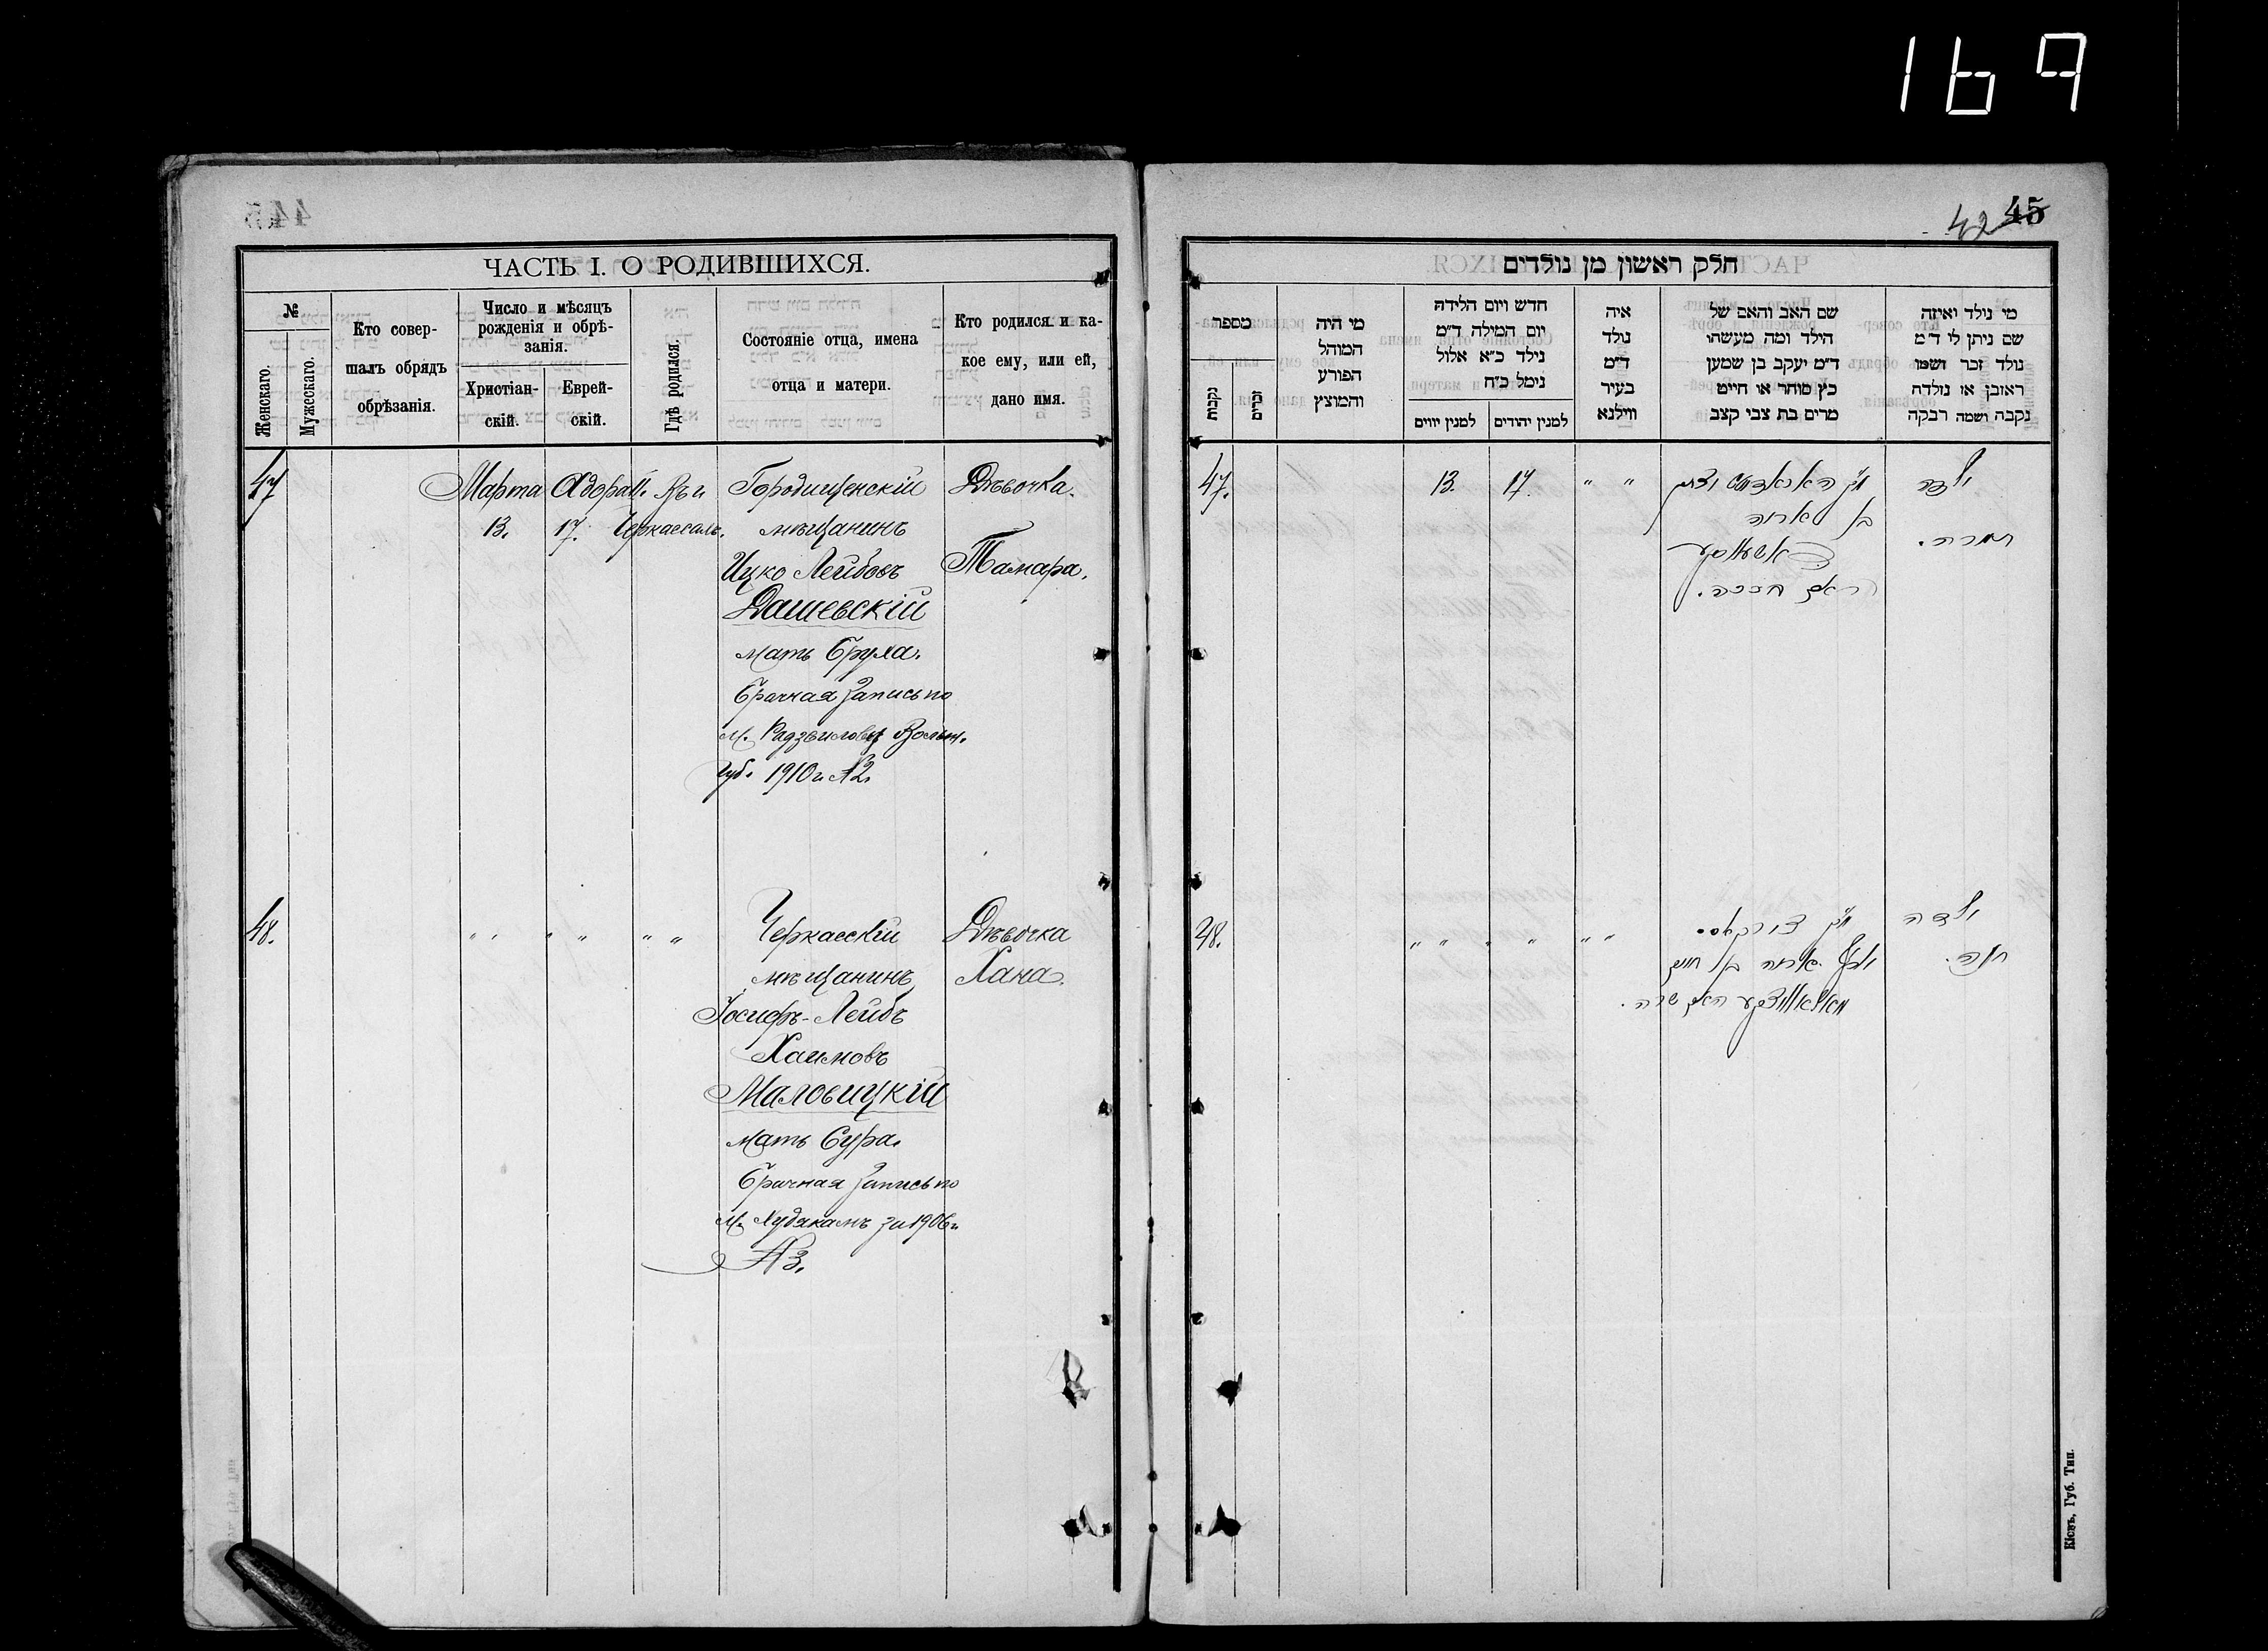 169
ЧАСТЬ I. О РОДИВШИХСЯ.
№
Женскаго.
Мужескаго.
Кто совер-
шалъ обрядъ
обрѣзанія.
Число и мѣсяцъ
рожденія и обрѣ-
занія.
Христіан-
скій.
Еврей-
скій.
Гдѣ родился.
Состояніе отца, имена
отца и матери.
Кто родился и ка-
кое ему, или ей,
дано имя.
47
Марта
13.
17.
Городищенскій
мѣщанинъ
Ицко Лейбовъ
Дашевскій
мать Бруха.
Брачная запись по
м. Волын.
губ. 1910 г. №2.
Дѣвочка.
Тамара.
48.
" "
" "
" "
Черкасскій
мѣщанинъ
Іосифъ-Лейбъ
Хаимовъ
Маловицкій
мать Сура.
Брачная запись по
м. Худякамъ за 1906 г.
№3.
Дѣвочка
Хана.
42 45
חלק ראשון מן נולדים
מספר
נקבות
זכרים
מי היה
המוהל
הפורע
והמוצץ
חדש ויום הלידה
יום המילה ד״מ
נילד כ״א אלול
נימל כ״ח
למנין יווים
למנין יהודים
איה
נולד
ד״מ
בעיר
ווילנא
שם האב והאם של
הילד ומה מעשהו
ד״מ יעקב בן שמען
כץ סוחר או חייט
מרים בת צבי קצב
מי נולד ואיזה
שם ניתן לו ד״מ
נולד זכר ושמו
ראובן או נולדה
נקבה ושמה רבקה
47.
13.
17.
" "
ילדה
תמרה.
48.
" "
" "
" "
ילדה
חנה.
Кіевъ, Губ. Тип.